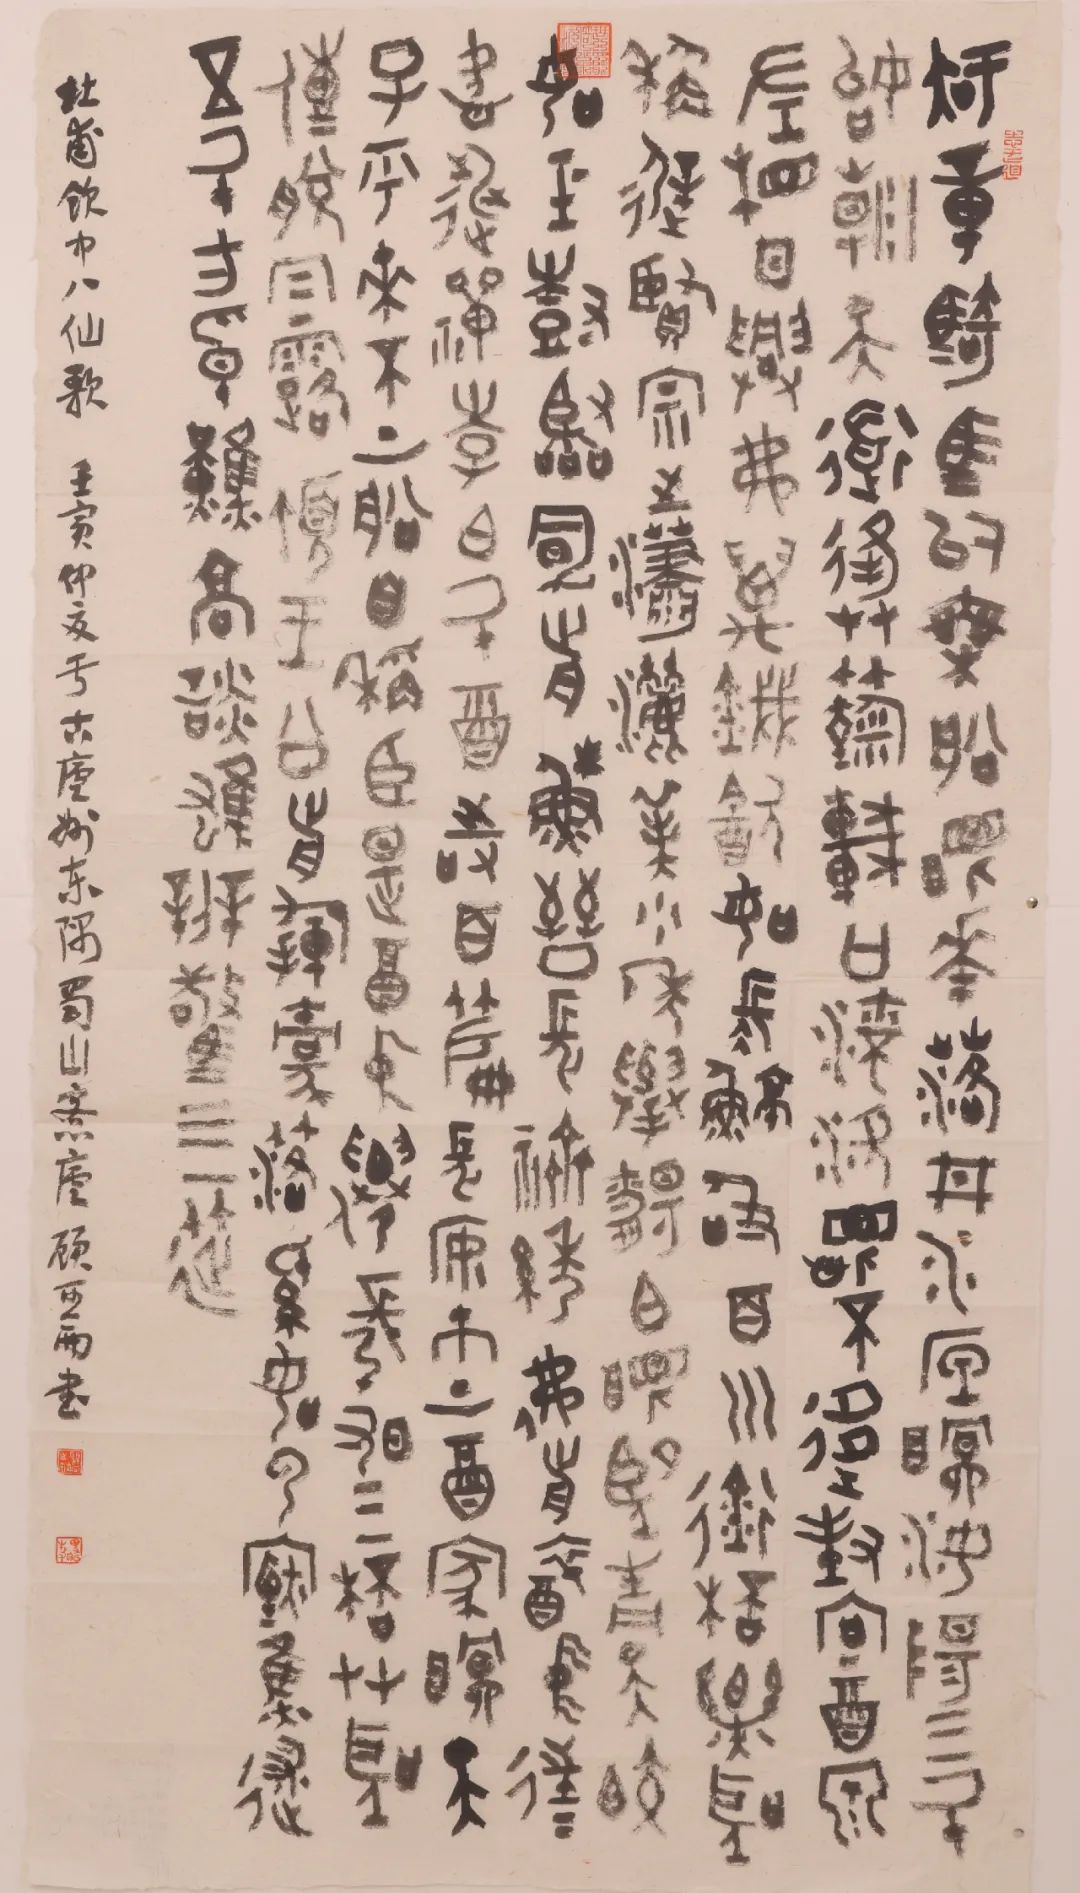 知章騎馬似乘船眼花落井水底眠汝陽三斗
始朝天道逢麴車口流涎恨不移封向酒泉
左相日興費萬錢飲如長鯨吸百川銜杯樂聖
稱避賢宗之瀟灑美少年舉觴白眼望青天皎
如玉樹臨風前蘇晉長齋繡佛前醉中往
愛逃禪李白斗酒詩百篇長安市上酒家眠天
子呼來不上船自稱臣是酒中仙張旭三杯草聖
傳脫帽露頂王公前揮毫落紙如雲煙焦遂
五斗方卓然高談雄辯驚四筵
杜甫飲中八仙歌 壬寅仲夏于古廬州東隅蜀山齋廬顧書